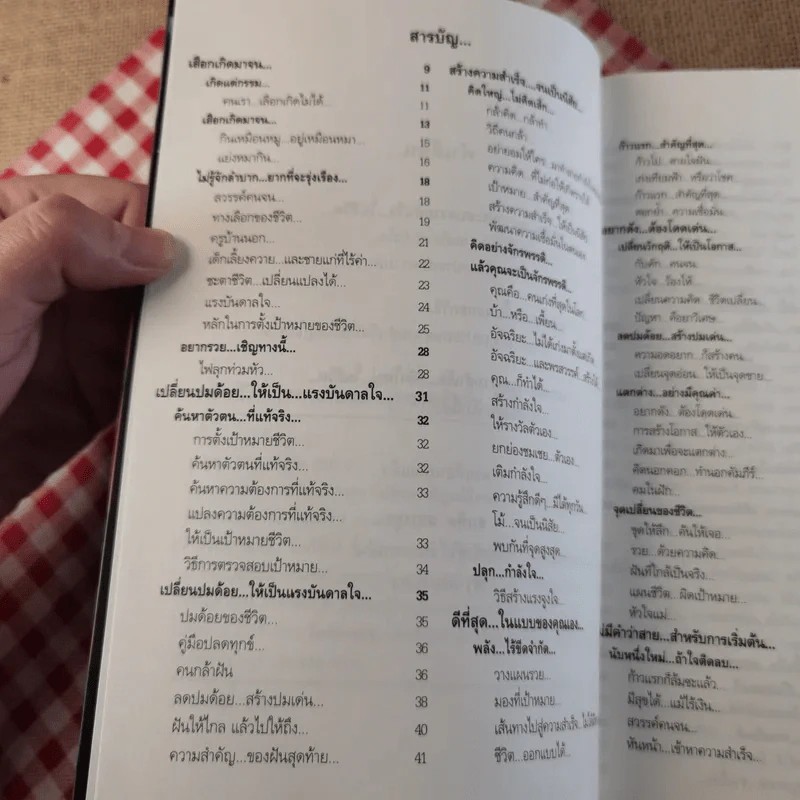 สารบัญ...
เลือกเกิดมาจน... 9
เกิดแต่กรรม... 11
คนเรา...เลือกเกิดไม่ได้... 11
เลือกเกิดมาจน... 13
กินเหมือนหมู...อยู่เหมือนหมา... 15
แย่งหมากิน... 16
ไม่รู้จักลำบาก...ยากที่จะรุ่งเรือง... 18
สวรรค์คนจน... 18
ทางเลือกของชีวิต... 19
ครูบ้านนอก... 21
เด็กเลี้ยงควาย...และชายแก่ที่ไร้ค่า... 22
ชะตาชีวิต...เปลี่ยนแปลงได้... 23
แรงบันดาลใจ... 24
หลักในการตั้งเป้าหมายของชีวิต... 25
อยากรวย...เชิญทางนี้... 28
ไฟลุกท่วมหัว... 28
เปลี่ยนปมด้อย...ให้เป็น...แรงบันดาลใจ... 31
ค้นหาตัวตน...ที่แท้จริง... 32
การตั้งเป้าหมายชีวิต... 32
ค้นหาตัวตนที่แท้จริง... 32
ค้นหาความต้องการที่แท้จริง... 33
แปลงความต้องการที่แท้จริง...
ให้เป็นเป้าหมายชีวิต... 33
วิธีการตรวจสอบเป้าหมาย... 34
เปลี่ยนปมด้อย...ให้เป็นแรงบันดาลใจ... 35
ปมด้อยของชีวิต... 35
คู่มือปลดทุกข์... 36
คนกล้าฝัน 36
ลดปมด้อย...สร้างปมเด่น... 38
ฝันให้ไกล แล้วไปให้ถึง... 40
ความสำคัญ...ของฝันสุดท้าย... 41
สร้างความสำเร็จ....จนเป็นนิสัย...
คิดใหญ่...ไม่คิดเล็ก...
กล้าคิด...กล้าทำ...
วิถีคนกล้า...
อย่ายอมให้ใคร...
ความคิด...
เป้าหมาย...สำคัญที่สุด...
สร้างความสำเร็จ...ให้เป็นนิสัย...
พัฒนาความเชื่อมั่นในตนเอง...
คิดอย่างจักรพรรดิ...
แล้วคุณจะเป็นจักรพรรดิ...
คุณคือ...คนเก่งที่สุดในโลก
บ้า...หรือ...เพี้ยน...
อัจฉริยะ...ไม่ได้เก่งมาตั้งแต่เกิด
อัจฉริยะ...และพรสวรรค์...
คุณ...ก็ทำได้...
สร้างกำลังใจ...
ให้รางวัลตัวเอง...
ยกย่องชมเชย...ตัวเอง...
เติมกำลังใจ...
ความรู้สึกดีๆ...มีได้ทุกวัน
โม้...จนเป็นนิสัย...
พบกันที่จุดสูงสุด...
ปลุก...กำลังใจ...
วิธีสร้างแรงจูงใจ...
ดีที่สุด...ในแบบของคุณเอง...
พลัง...ไร้ขีดจำกัด...
วางแผนรวย...
มองที่เป้าหมาย...
เส้นทางไปสู่ความสำเร็จ...
ชีวิต...ออกแบบได้...
ก้าวแรก...สำคัญที่สุด...
ก้าวไป...ตามใจฝัน...
เก่งเทียมฟ้า...หรือวาโชค...
ก้าวแรก...สำคัญที่สุด...
ตอกย้ำ...ความเชื่อมั่น...
อยากดัง...ต้องโดดเด่น...
เปลี่ยนวิกฤติ...ให้เป็นโอกาส...
กับดัก...คนจน...
หัวใจ...ร้องไห้...
เปลี่ยนความคิด...ชีวิตเปลี่ยน...
ปัญหา...คือยาวิเศษ...
ลดปมด้อย...สร้างปมเด่น...
ความอดอยาก...ก็สร้างคน...
เปลี่ยนจุดอ่อน...ให้เป็นจุดขาย...
แตกต่าง...อย่างมีคุณค่า...
อยากดัง...ต้องโดดเด่น...
การสร้างโอกาส...ให้ตัวเอง...
เกิดมาเพื่อจะแตกต่าง...
คิดนอกคอก...ทำนอกคัมภีร์...
คมในฝัก...
จุดเปลี่ยนของชีวิต...
ขุดให้ลึก...ค้นให้เจอ...
รวย...ด้วยความคิด...
ฝันที่ใกล้เป็นจริง...
แผนชีวิต...ผิดเป้าหมาย...
หัวใจแม่...
ไม่มีคำว่าสาย...สำหรับการเริ่มต้น...
นับหนึ่งใหม่...ถ้าใจติดลบ...
ก้าวแรกก็ล้มซะแล้ว...
มีสุขได้...แม้ไร้เงิน...
สวรรค์คนจน...
หันหน้า...เข้าหาความสำเร็จ...